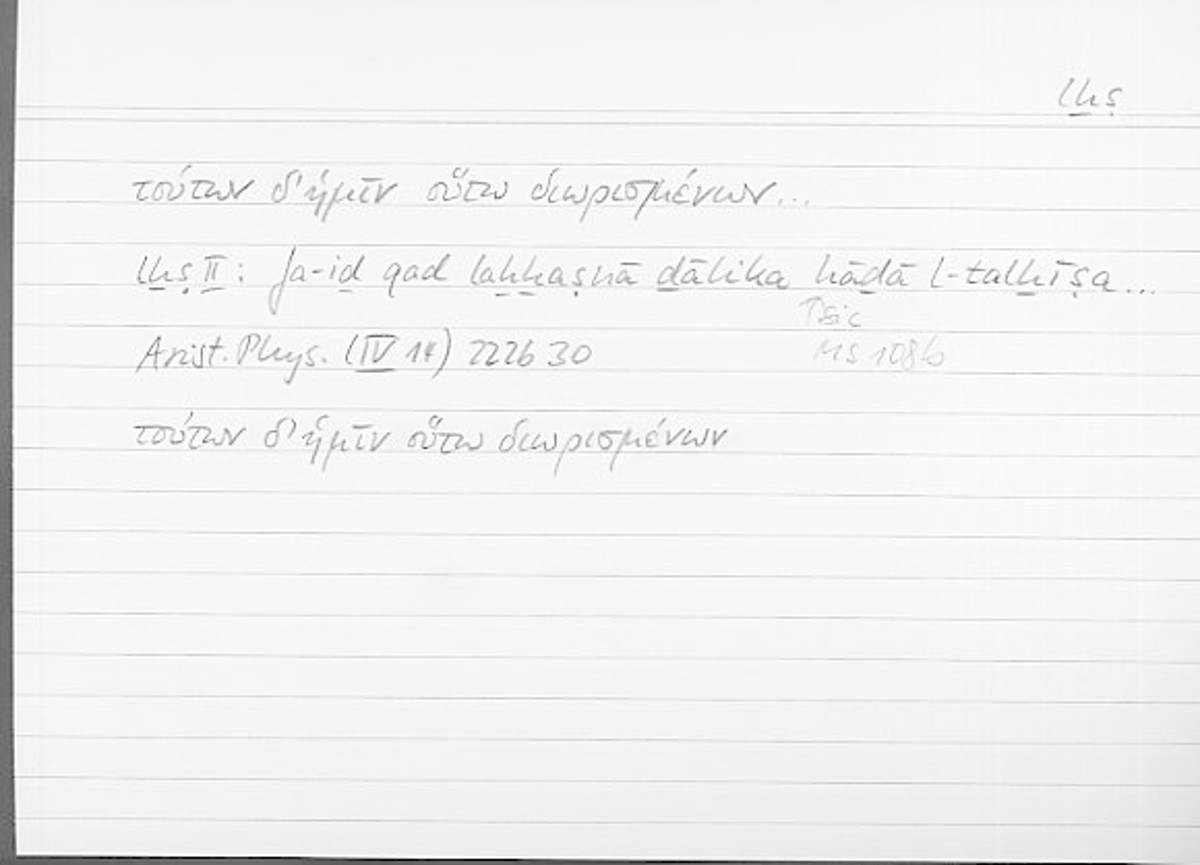 lḫṣ
τούτων δ' ἡμῖν οὕτω διωρισμένων...
lḫṣ II: fa-iḏ qad laḫḫaṣnā ḏālika hāḏā l-talḫīṣa...
sic
Arist. Phys. (IV 14) 222b 30
MS 108b
τούτων δ' ἡμῖν οὕτω διωρισμένων